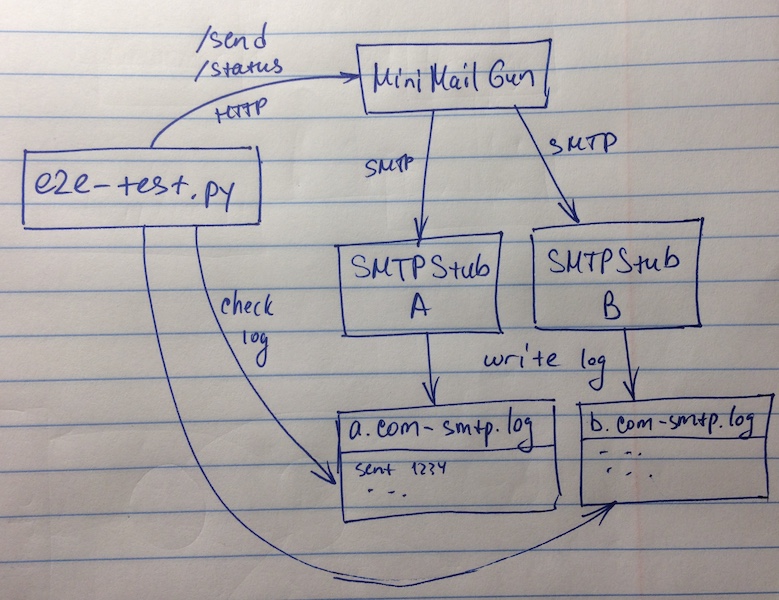 /send
/status
HTTP
Mini Mail Gun
e2e-test.py
SMTP
SMTP
SMTPStub
A
SMTPStub
B
check
log
write log
a.com-smtp.log
sent 1234
- -.
b.com-smtp.log
- --.
- -.